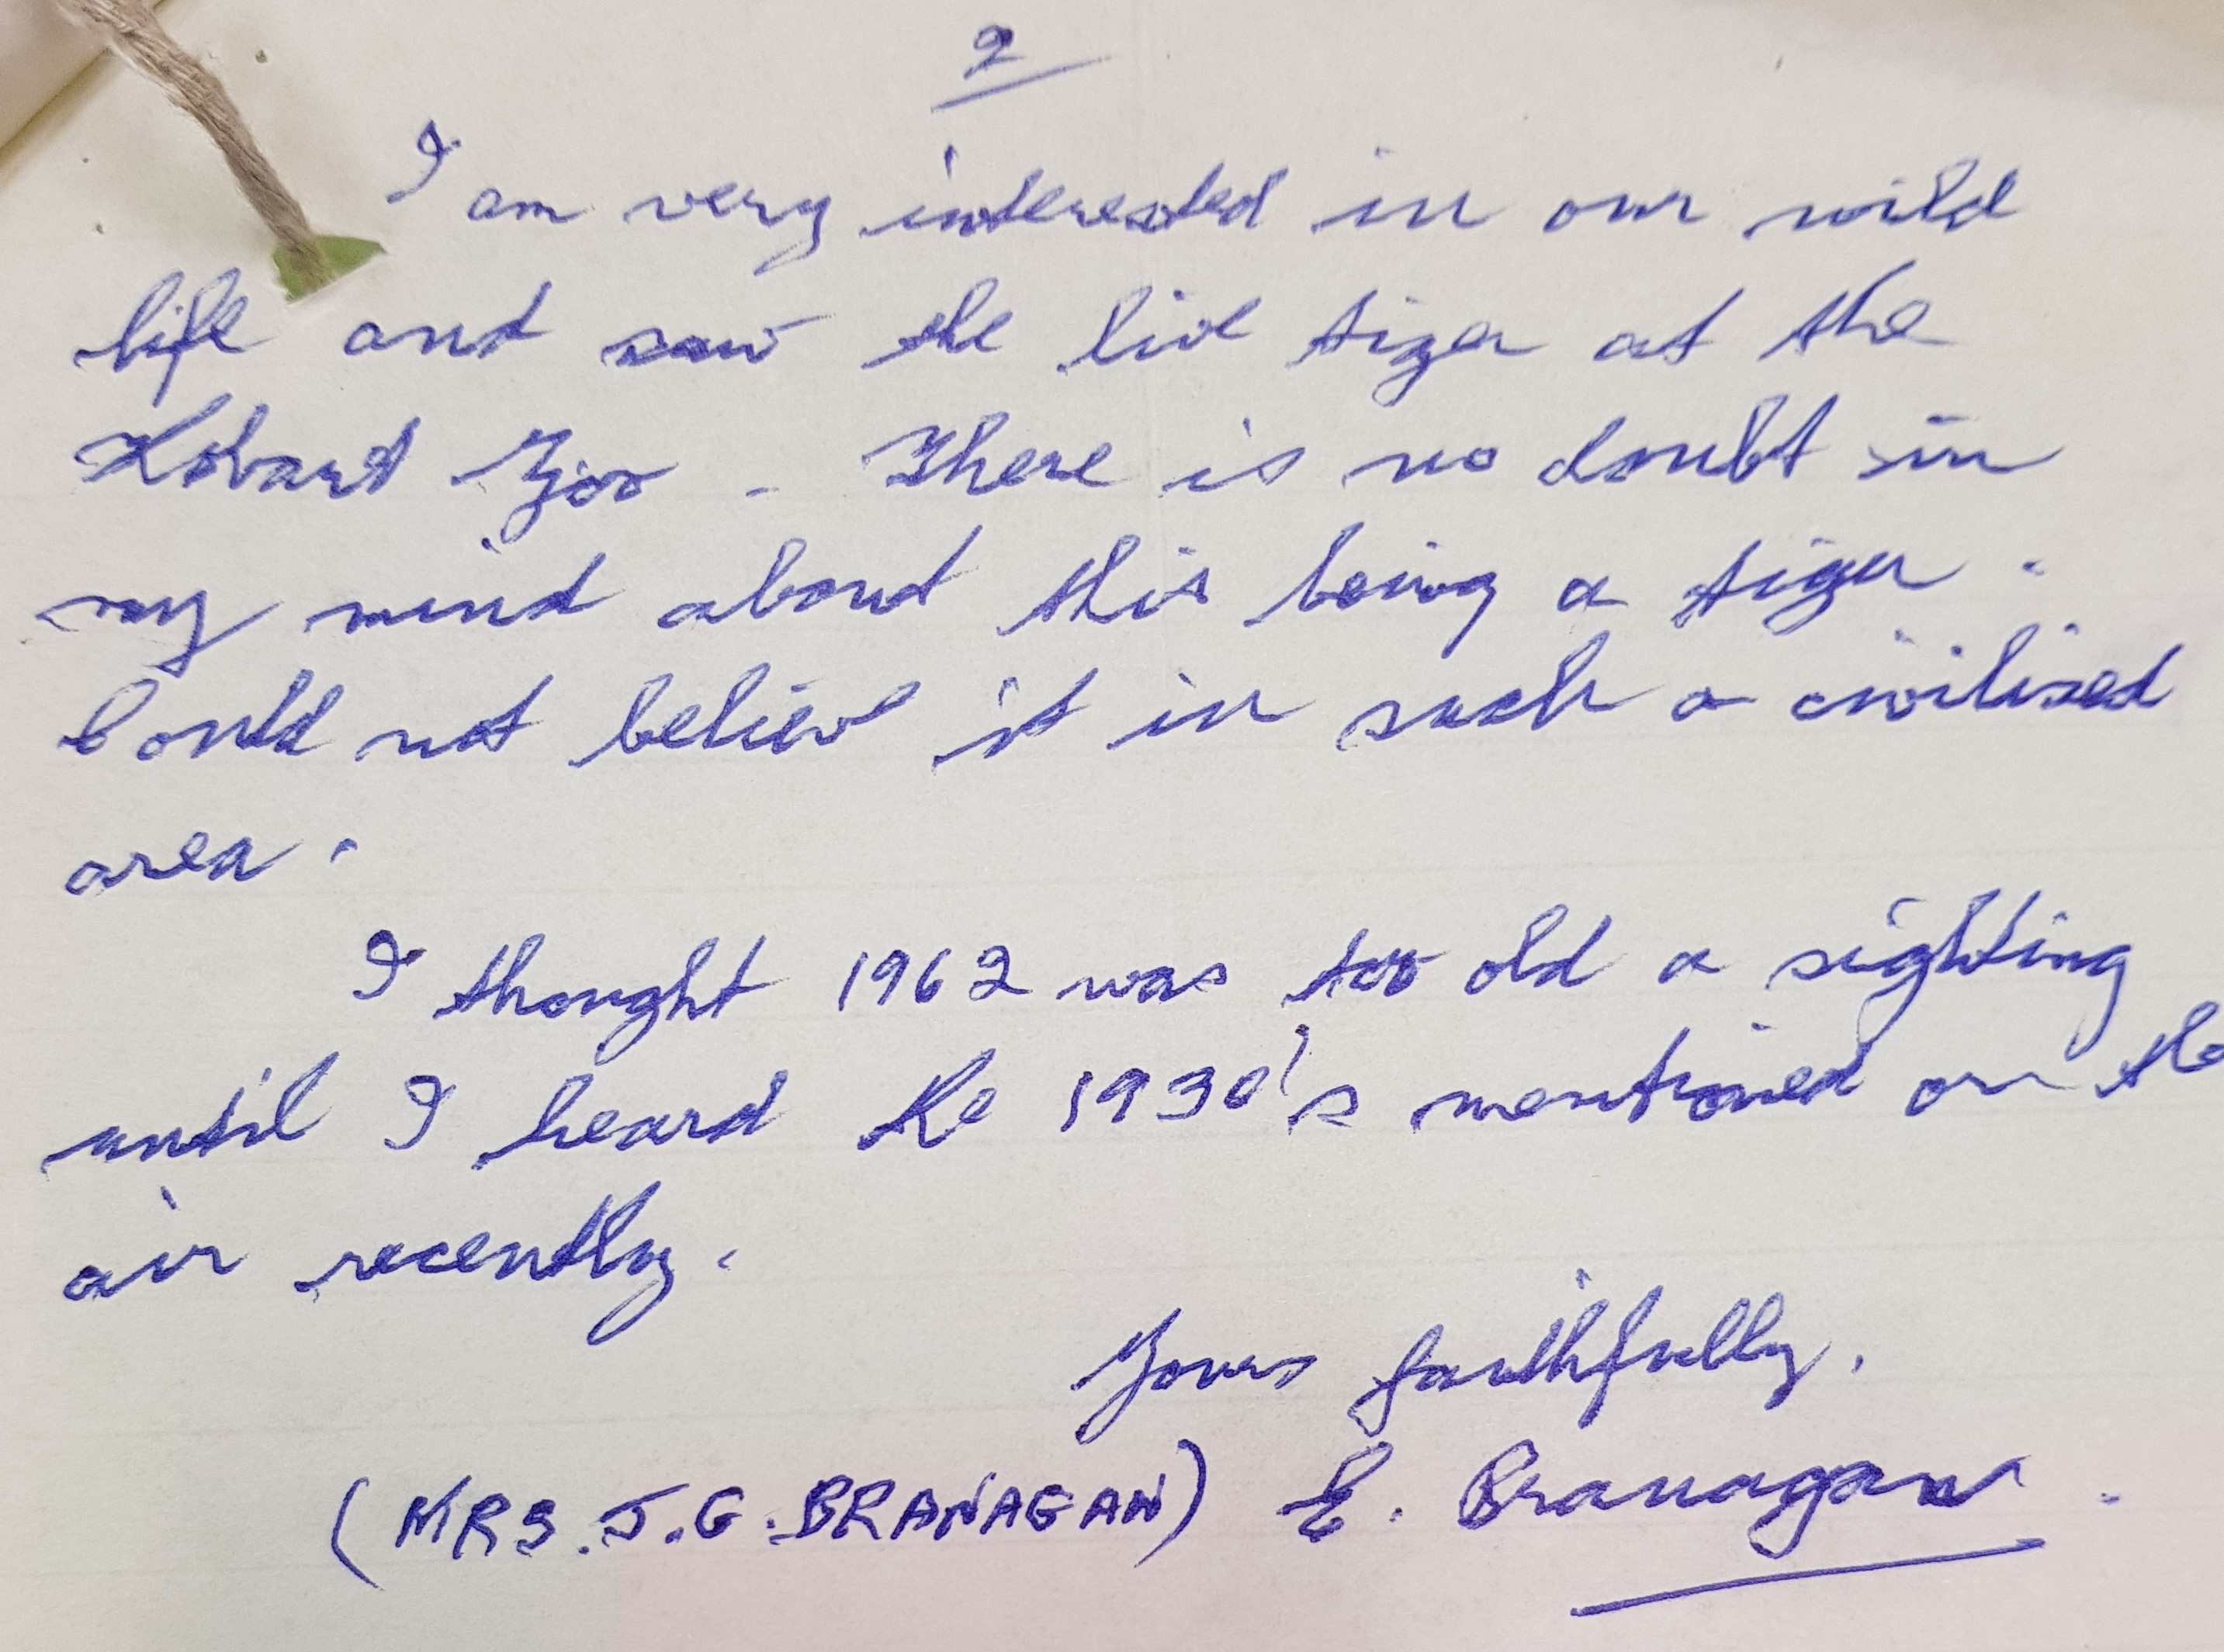 2
I am very interested in our wild
life and saw the live tiger at the
Hobart Zoo. There is no doubt in
my mind about this being a tiger.
Could not believe it in such a civilised
area.
I thought 1962 was too old a sighting
until I heard the 1930's mentioned on the
air recently.
Yours faithfully,
(MRS. J.G. BRANAGAN) E. Branagan.